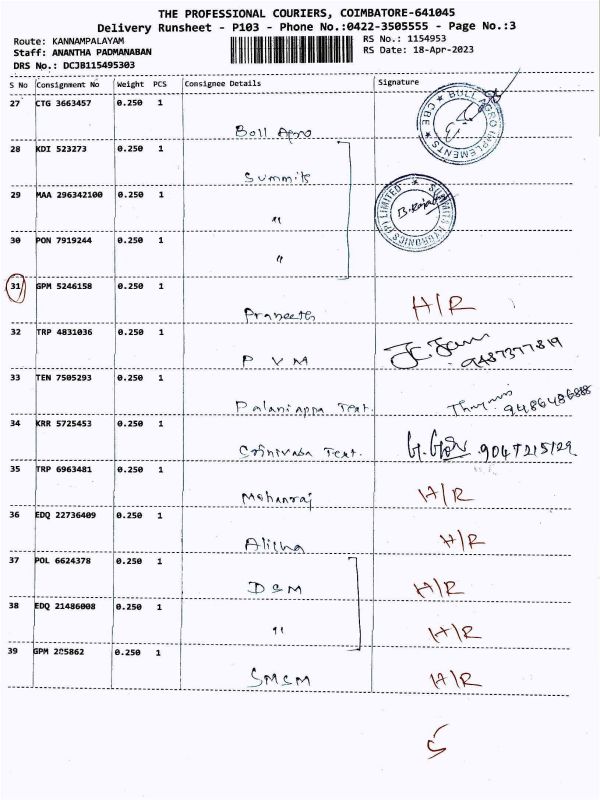 THE PROFESSIONAL COURIERS, COIMBATORE-641045
Delivery Runsheet - P103 - Phone No.:0422-3505555 - Page No.:3
Route: KANNAMPALAYAM
RS No.: 1154953
Staff: ANANTHA PADMANABAN
RS Date: 18-Apr-2023
DRS No.: DCJB115495303
S No Consignment No Weight PCS Consignee Details Signature
27 CTG 3663457 0.250 1
Boll Agro
BOLL AGRO IMPLEMENTS ★ CBE ★
28 KDI 523273 0.250 1
Summits
29 MAA 296342100 0.250 1
"
SUMMITS HYGRONICS (P) LIMITED ★
30 PON 7919244 0.250 1
"
31 GPM 5246158 0.250 1
Praneeth H/R
32 TRP 4831036 0.250 1
P V M 9487377819
33 TEN 7505293 0.250 1
Palaniappa Text. 9486486888
34 KRR 5725453 0.250 1
Srinivasa Text. 9047215129
35 TRP 6963481 0.250 1
Mohanraj H/R
36 EDQ 22736409 0.250 1
Alisha H/R
37 POL 6624378 0.250 1
DSM H/R
38 EDQ 21486008 0.250 1
" H/R
39 GPM 285862 0.250 1
SMSM H/R